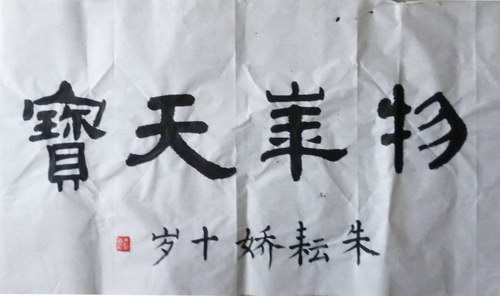 物華天寶
朱耘娇十岁